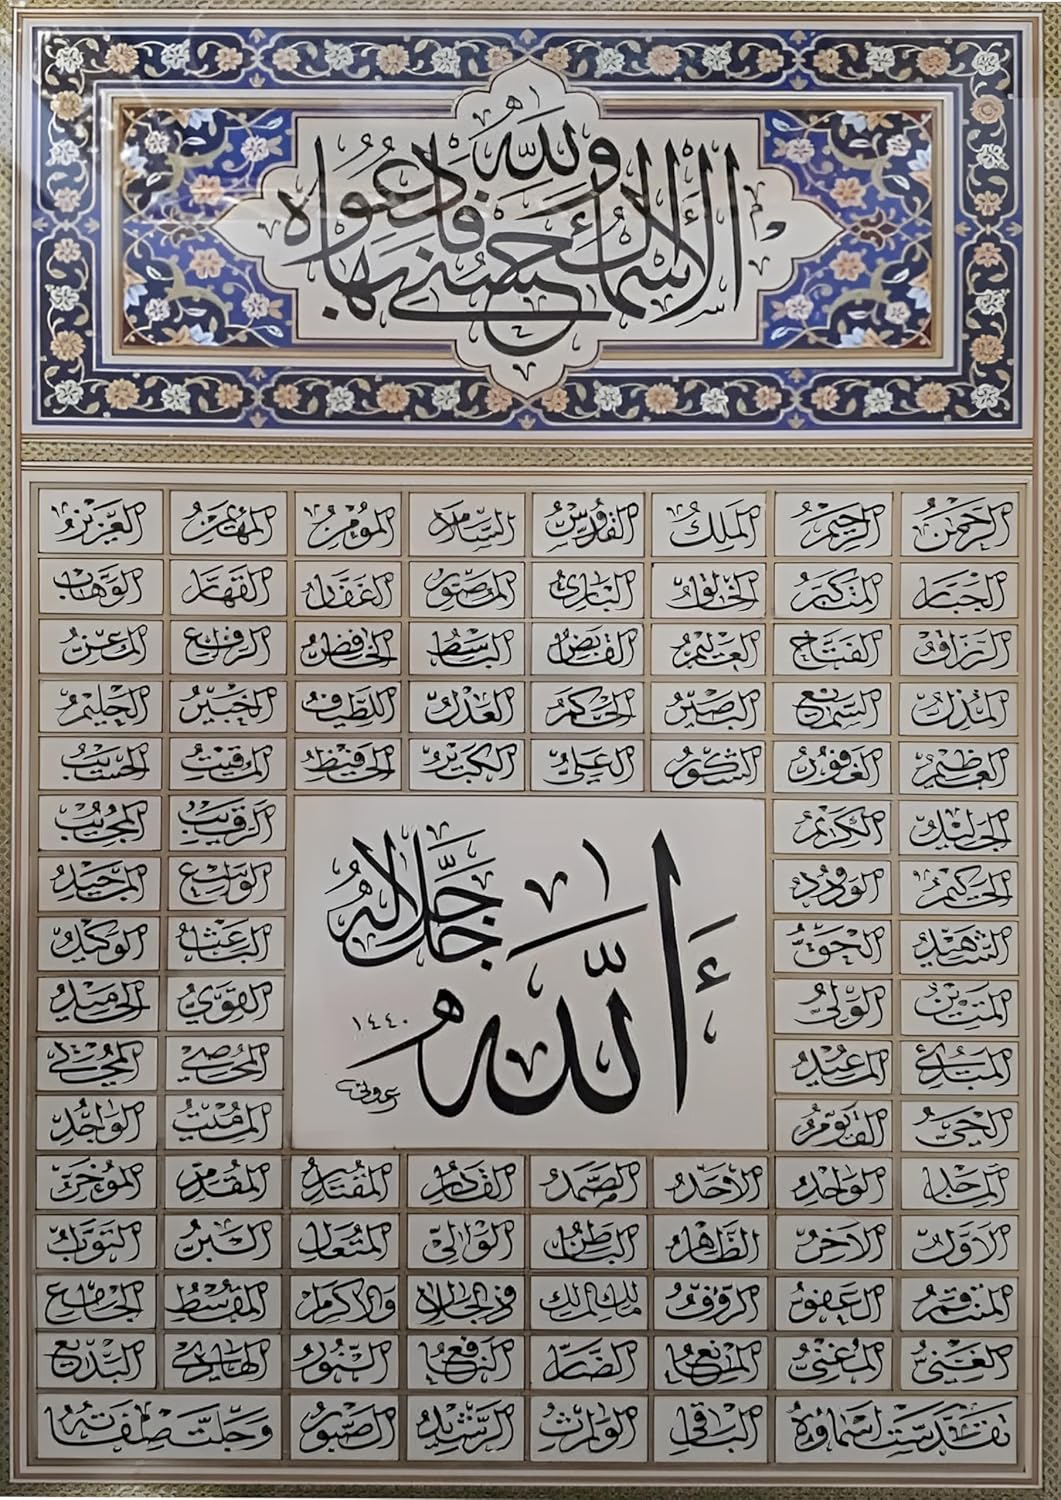 ولله الأسماء الحسنى فادعوه بها
الرحمن الرحيم الملك القدوس السلام المؤمن المهيمن العزيز
الجبار المتكبر الخالق البارئ المصور الغفار القهار الوهاب
الرزاق الفتاح العليم القابض الباسط الخافض الرافع المعز
المذل السميع البصير الحكم العدل اللطيف الخبير الحليم
العظيم الغفور الشكور العلي الكبير الحفيظ المقيت الحسيب
الجليل الكريم الرقيب المجيب
الحكيم الودود الواسع المجيد
الشهيد الحق الباعث الوكيل
المتين الولي القوي الحميد
المبدئ المعيد المحصي المحيي
الحي القيوم المميت الواجد
الله جل جلاله
١٤٤٠
الماجد الواحد الأحد الصمد القادر المقتدر المقدم المؤخر
الاول الآخر الظاهر الباطن الوالي المتعال البر التواب
المنتقم العفو الرؤوف مالك الملك ذو الجلال والاكرام المقسط الجامع
الغني المغني المانع الضار النافع النور الهادي البديع
تقدست اسماؤه الباقي الوارث الرشيد الصبور وجلت صفاته